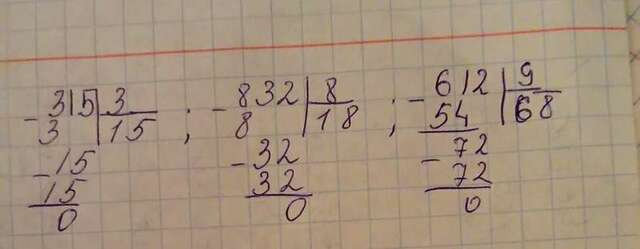 - 315 | 3 ; - 832 | 8 ; - 612 | 9
3 | 15 8 | 18 54 | 68
- 15 - 32 - 72
15 32 72
0 0 0